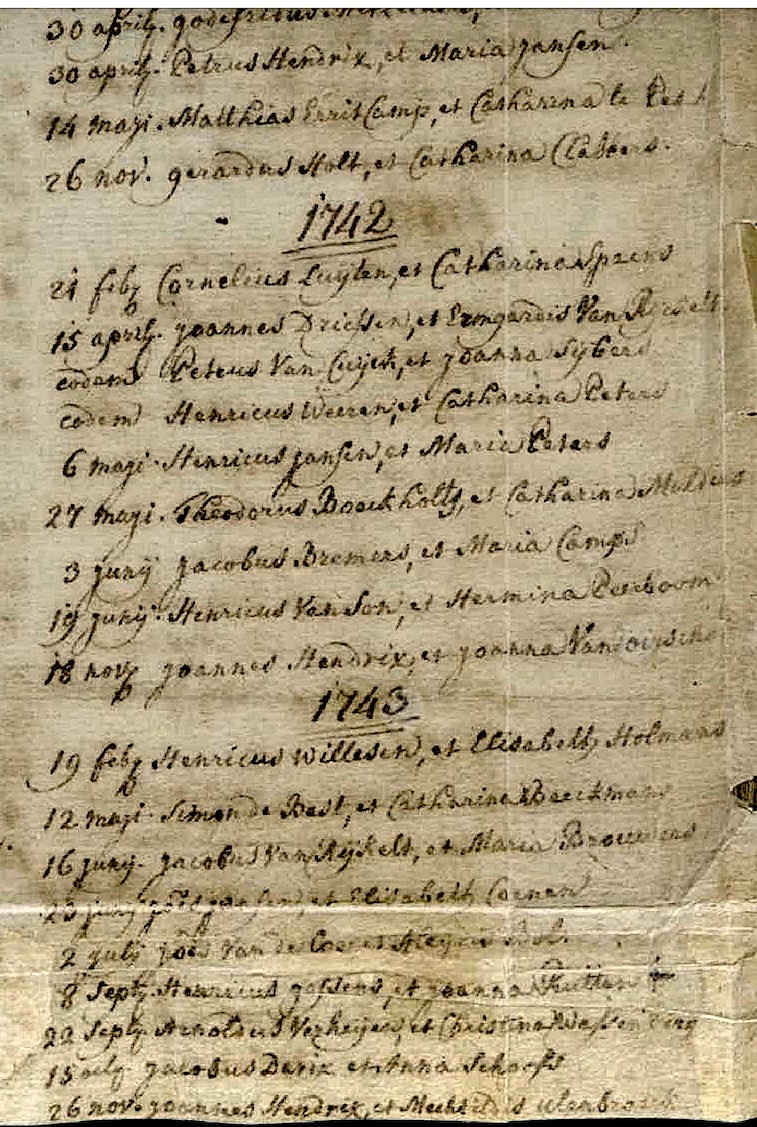 30 aprily. godefridus
30 aprily. Petrus Hendrix, et Maria jansen.
14 maji. Matthias Errit Camp, et Catharina te
26 nov. gerardus Holt, et Catharina Clabbers.
1742
21 feby Cornelius Luijten, et Catharina
15 aprily. joannes Driessen, et Ermgardis Van
eodem Petrus Van Cuijck, et joanna Sijbers
eodem Henricus Weeren, et Catharina Peters
6 maji. Henricus jansen, et Maria Peters
27 maji. Theodorus Boeckholtz, et Catharina
3 junij jacobus Bremers, et Maria Camps
19 junij. Henricus Van Son, et Hermina Peerboom
18 novb joannes Hendrix, et joanna Van
1743
19 feby Henricus Willesen, et Elisabeth Holmans
12 maji. Simon de Best, et Catharina Beeckmans
16 junij. jacobus Van Rijkelt, et Maria Brouwers
23 junij jansen, et Elisabeth Coenen
2 julij joes Van de et
8 Septb. Henricus gossens, et joanna Rutten
22 Septb. Arnoldus Verheijen, et Christina Wassenberg
15 jacobus Derix et Anna Schoofs
26 nov. joannes Hendrix, et Mechtildis